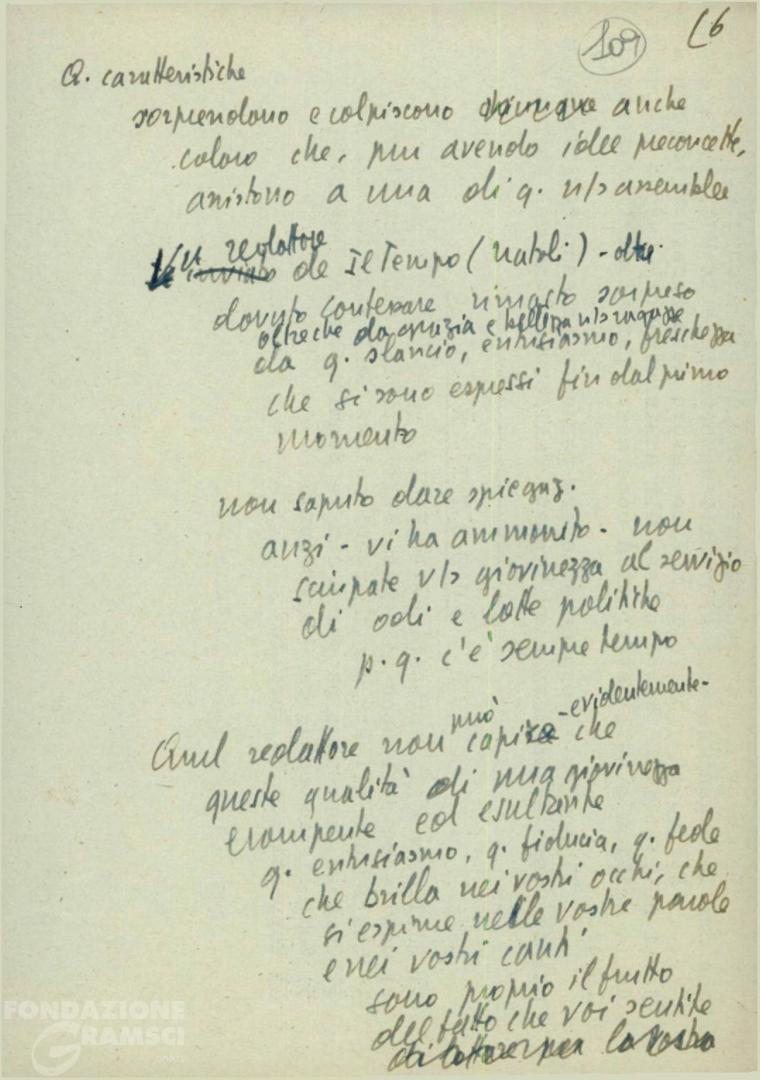 109
(6
Q. caratteristiche
sorprendono e colpiscono anche
coloro che, pur avendo idee preconcette,
assistono a una di q. n/s assemblee
Un redattore
inviato de Il Tempo (Natoli) - oltre
dovuto confessare rimasto sorpreso
oltreche da grazia e bellezza n/s ragazze
da q. slancio, entusiasmo, freschezza
che si sono espressi fin dal primo
momento
non saputo dare spiegaz.
anzi - vi ha ammonito - non
sciupate v/s giovinezza al servizio
di odi e lotte politiche
p. q. c'è sempre tempo
può -evidentemente-
Quel redattore non capire che
queste qualità di una giovinezza
erompente ed esultante
q. entusiasmo, q. fiducia, q. fede
che brilla nei vostri occhi, che
si esprime nelle vostre parole
e nei vostri canti
sono proprio il frutto
del fatto che voi sentite
di lottare per la vostra
FONDAZIONE
GRAMSCI